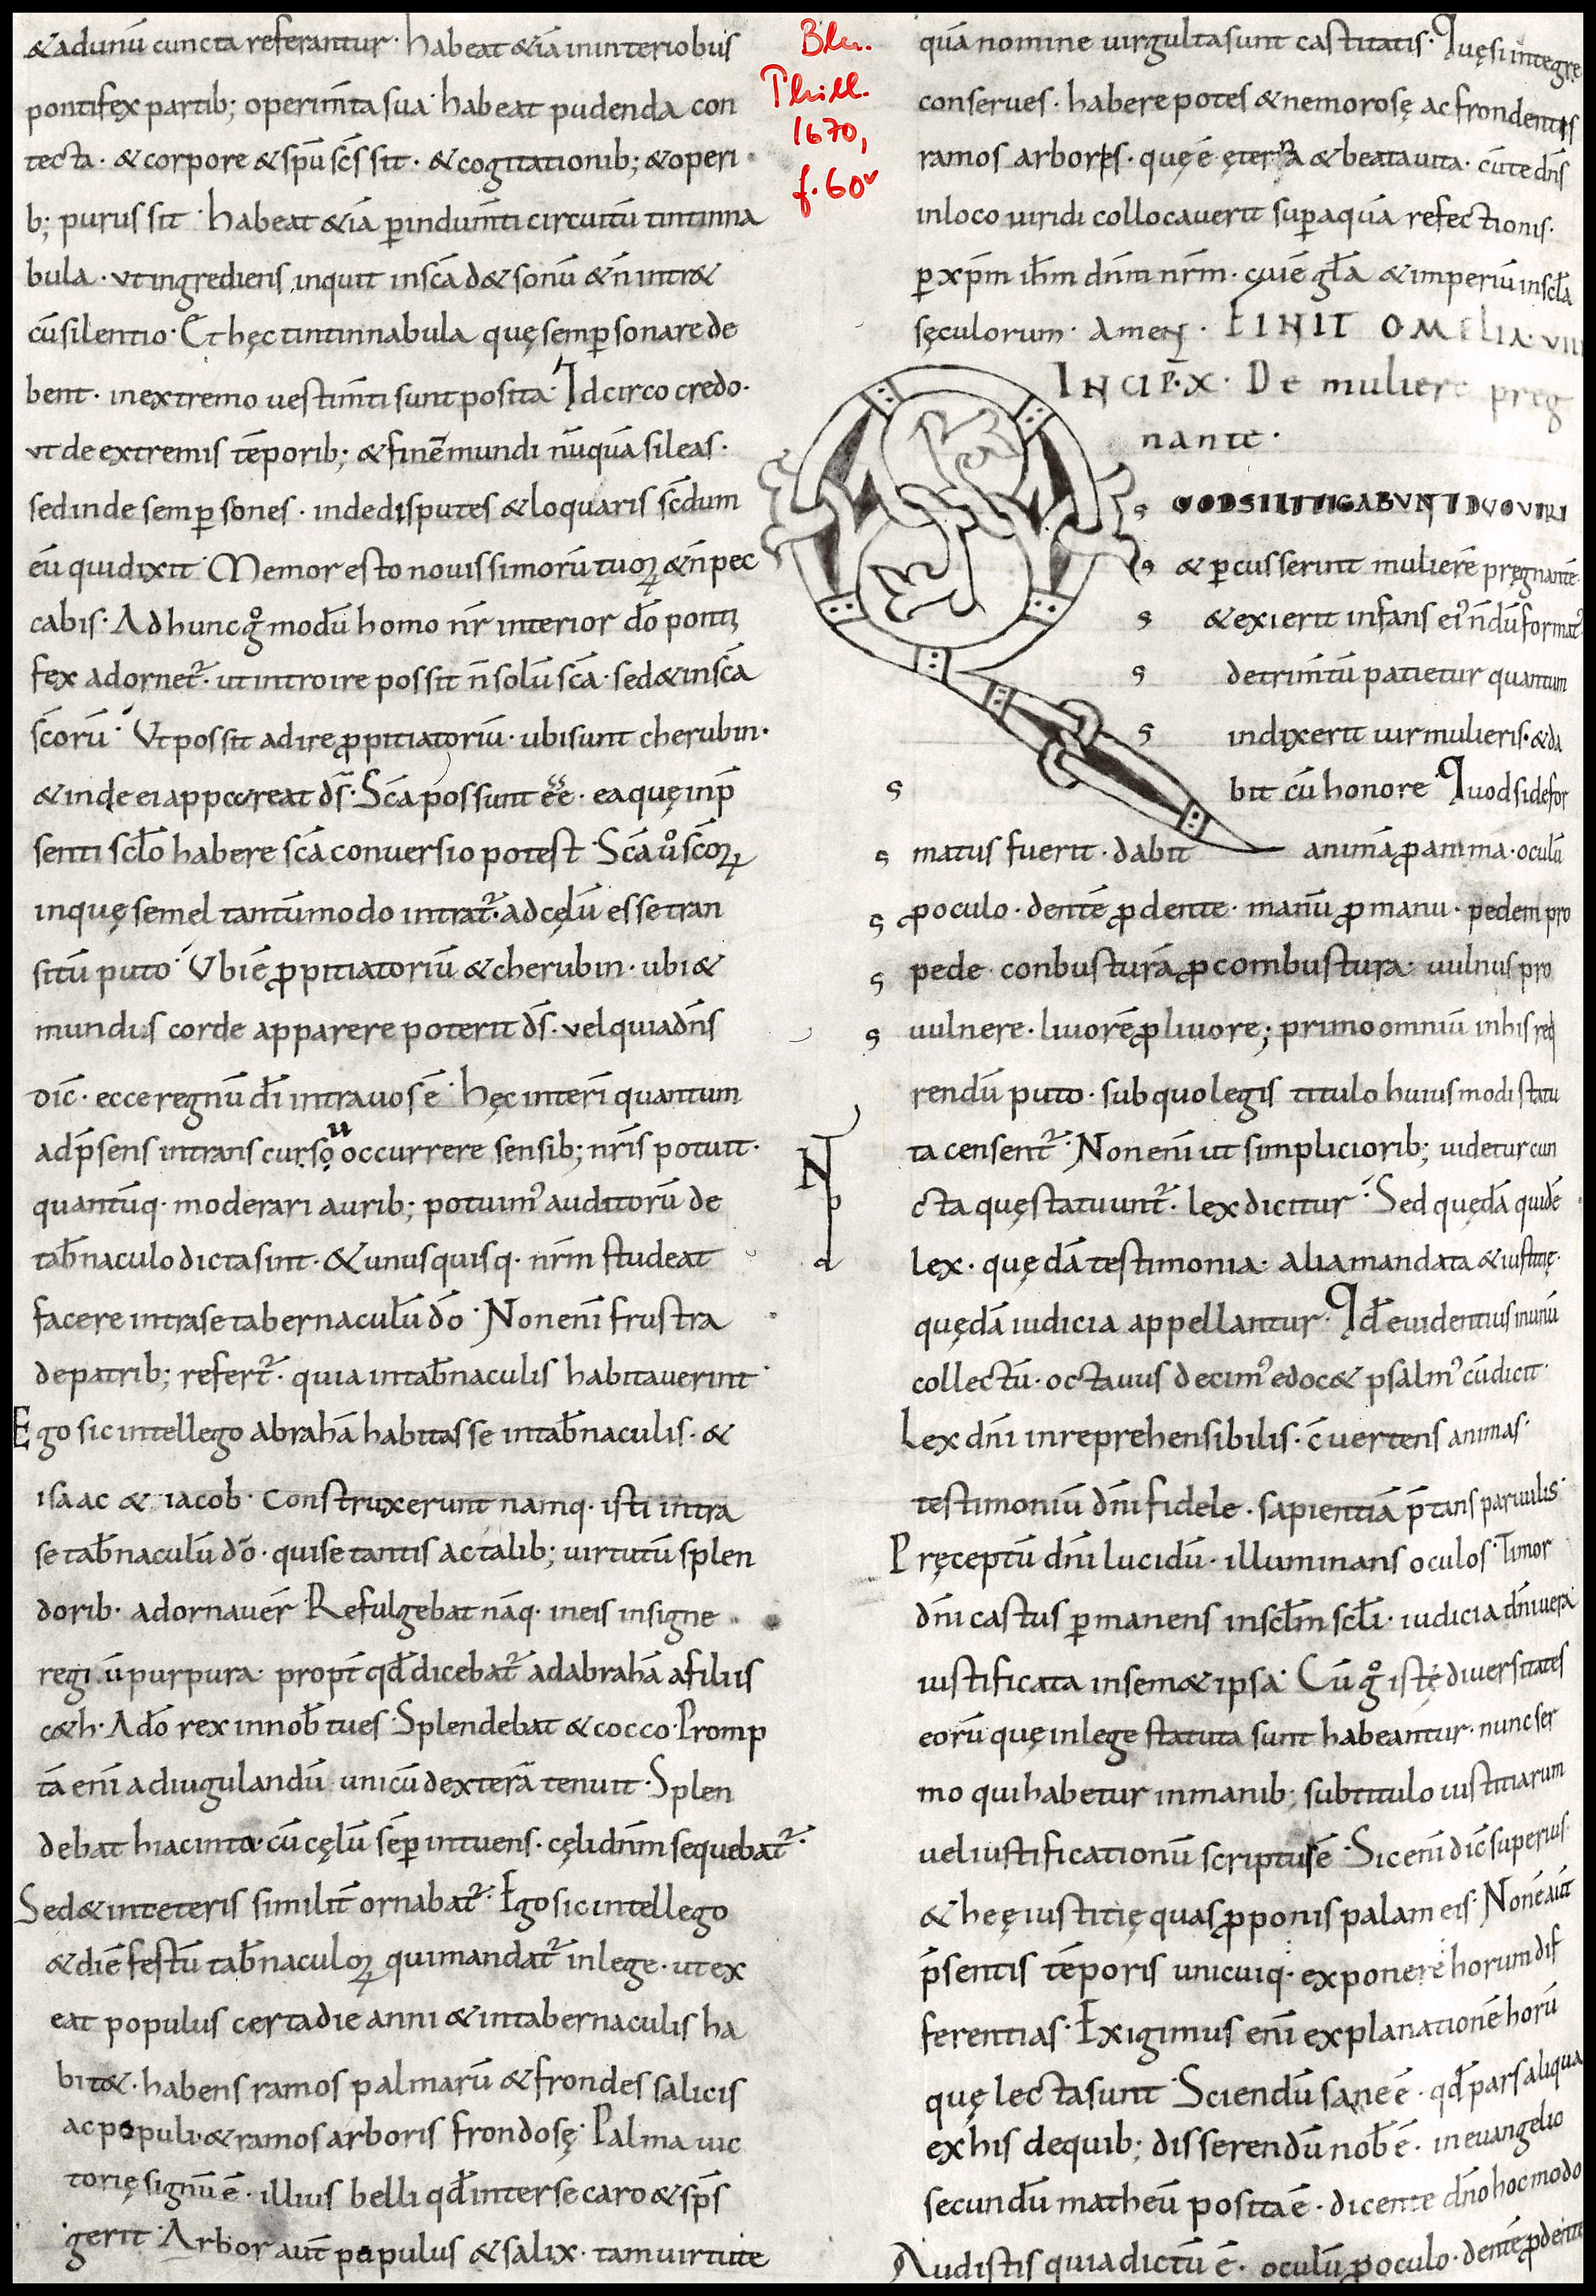 &adunū cuncta referantur· habeat &iā ininteriobus
pontifex partib; operim̄ta sua· habeat pudenda con
tecta· &corpore &sp̄u sc̄s sit· &cogitationib; &operi
b; purus sit· habeat &iā ꝑindum̄ti circuitū tintinna
bula· ut ingrediens inquit insc̄a d& sonū &n̄ intr&
cū silentio· Et hęc tintinnabula quę semꝑ sonare de
bent· inextremo uestim̄ti sunt posita· Idcirco credo·
ut de extremis tēporib; & finē mundi nūquā sileas·
sed inde semꝑ sones· inde disputes & loquaris sc̄dum
eū qui dixit· Memor esto nouissimorū tuoꝝ &n̄ pec
cabis· Ad hunc gͦ modū homo nr̄ interior dō ponti
fex adornet᷑· ut introire possit n̄ solū sc̄a· sed & insc̄a
sc̄orū· Ut possit adire ꝓpitiatoriū· ubi sunt cherubin·
& inde ei appareat ds̄· Sc̄a possunt ēē· ea quę inp̄
senti sc̄lo habere sc̄a conuersio potest· Sc̄a uͦ sc̄oꝝ
inquę semel tantūmodo intrat᷑· ad cęlū esse tran
sitū puto· Ubi ē ꝓpitiatoriū & cherubin· ubi &
mundis corde apparere poterit ds̄· vel quia dn̄s
dic̄· ecce regnū dī intra uos ē· hęc interī quantum
ad p̄sens intranscurso occurrere sensib; nr̄is potuit·
u
quantūq· moderari aurib; potuim᾽ auditorū de
tab̄naculo dicta sint· & unusquisq· nr̄m studeat
facere intra se tabernaculū dō· Non enī frustra
de patrib; refert᷑· quia intab̄naculis habitauerint·
Ego sic intellego abrahā habitasse intab̄naculis· &
isaac & iacob· construxerunt namq· isti intra
se tab̄naculū dō· qui se tantis ac talib; uirtutū splen
dorib· adornauer̄ Refulgebat nāq· ineis insigne
regiū purpura· propt̄ qd̄ dicebat᷑ ad abrahā a filiis
c&h· A dō rex in nob̄ tu es· Splendebat & cocco· Promp
tā enī ad iugulandū unicū dexterā tenuit· Splen
debat hiacinto· cū cęlū sēꝑ intuens· cęli dn̄m sequebat᷑·
Sed & inceteris similit̄ ornabat᷑· Ego sic intellego
& diē festū tab̄naculoꝝ qui mandat᷑ inlege· ut ex
eat populus certa die anni & intabernaculis ha
bit&· habens ramos palmarū & frondes salicis
ac populi· & ramos arboris frondosę· Palma uic
torię signū ē· illius belli qd̄ inter se caro & sp̄s
gerit· Arbor aut̄ populus & salix· tam uirtute
Bln.
Phill.
1670,
f. 60v
quā nomine uirgulta sunt castitatis· Quę si integre
conserues· habere potes & nemorosę ac frondentes
ramos arboris· quę ē ęterna & beata uita· cū te dn̄s
inloco uiridi collocauerit suꝑ aquā refectionis·
ꝑ xp̄m ih̄m dn̄m nr̄m· cui ē gl̄a & imperiū insc̄la
sęculorum· Amen· FINIT OMELIA· VIIII
INCIP̄· X· De muliere preg
nante·
QUOD SI LITIGABUNT DUO UIRI
& ꝑcusserint mulierē pręgnantē·
& exierit infans ei᾽ n̄dū format᾽
detrim̄tū patietur quantum
indixerit uir mulieris· & da
bit cū honore· Quod si defor
matus fuerit· dabit animā ꝓ anima· oculū
ꝓ oculo· dentē ꝓ dente· manū ꝓ manu· pedem pro
pede· conbusturā ꝓ combustura· uulnus pro
uulnere· liuorē ꝓ liuore; primo omniū inhis req
rendū puto· sub quo legis titulo huiusmodi statu
ta censent᷑· Non enī ut simpliciorib; uidetur cun
cta quę statuunt᷑· lex dicitur· Sed quędā quidē
lex· quędā testimonia· alia mandata & iustitię·
quędā iudicia appellantur· Id̄ euidentius inunū
collectū· octauus decim᾽ edoc& psalm᾽ cū dicit·
Lex dn̄i inreprehensibilis· c̄uertens animas·
testimoniū dn̄i fidele· sapientiā p̄stans paruulis·
Pręceptū dn̄i lucidū· illuminans oculos· Timor
dn̄i castus ꝑmanens insc̄lm sc̄li· iudicia dn̄i uera
iustificata insem& ipsa· Cū gͦ istę diuersitates
eorū quę inlege statuta sunt habeantur· nunc ser
mo qui habetur inmanib; sub titulo iustitiarum
uel iustificationū scriptus ē· Sic enī dic̄ superius·
& hęę iustitię quas ꝓponis palam eis· Non ē aut̄
p̄sentis tēporis unicuiq· exponere horum dif
ferentias· Exigimus enī explanationē horū
quę lecta sunt· Sciendū sane ē· qd̄ pars aliqua
ex his de quib; disserendū nob̄ ē· in euangelio
secundū matheū posita ē· dicente dn̄o hoc modo
Audistis quia dictū ē· oculū ꝓ oculo· dentē ꝓ dente